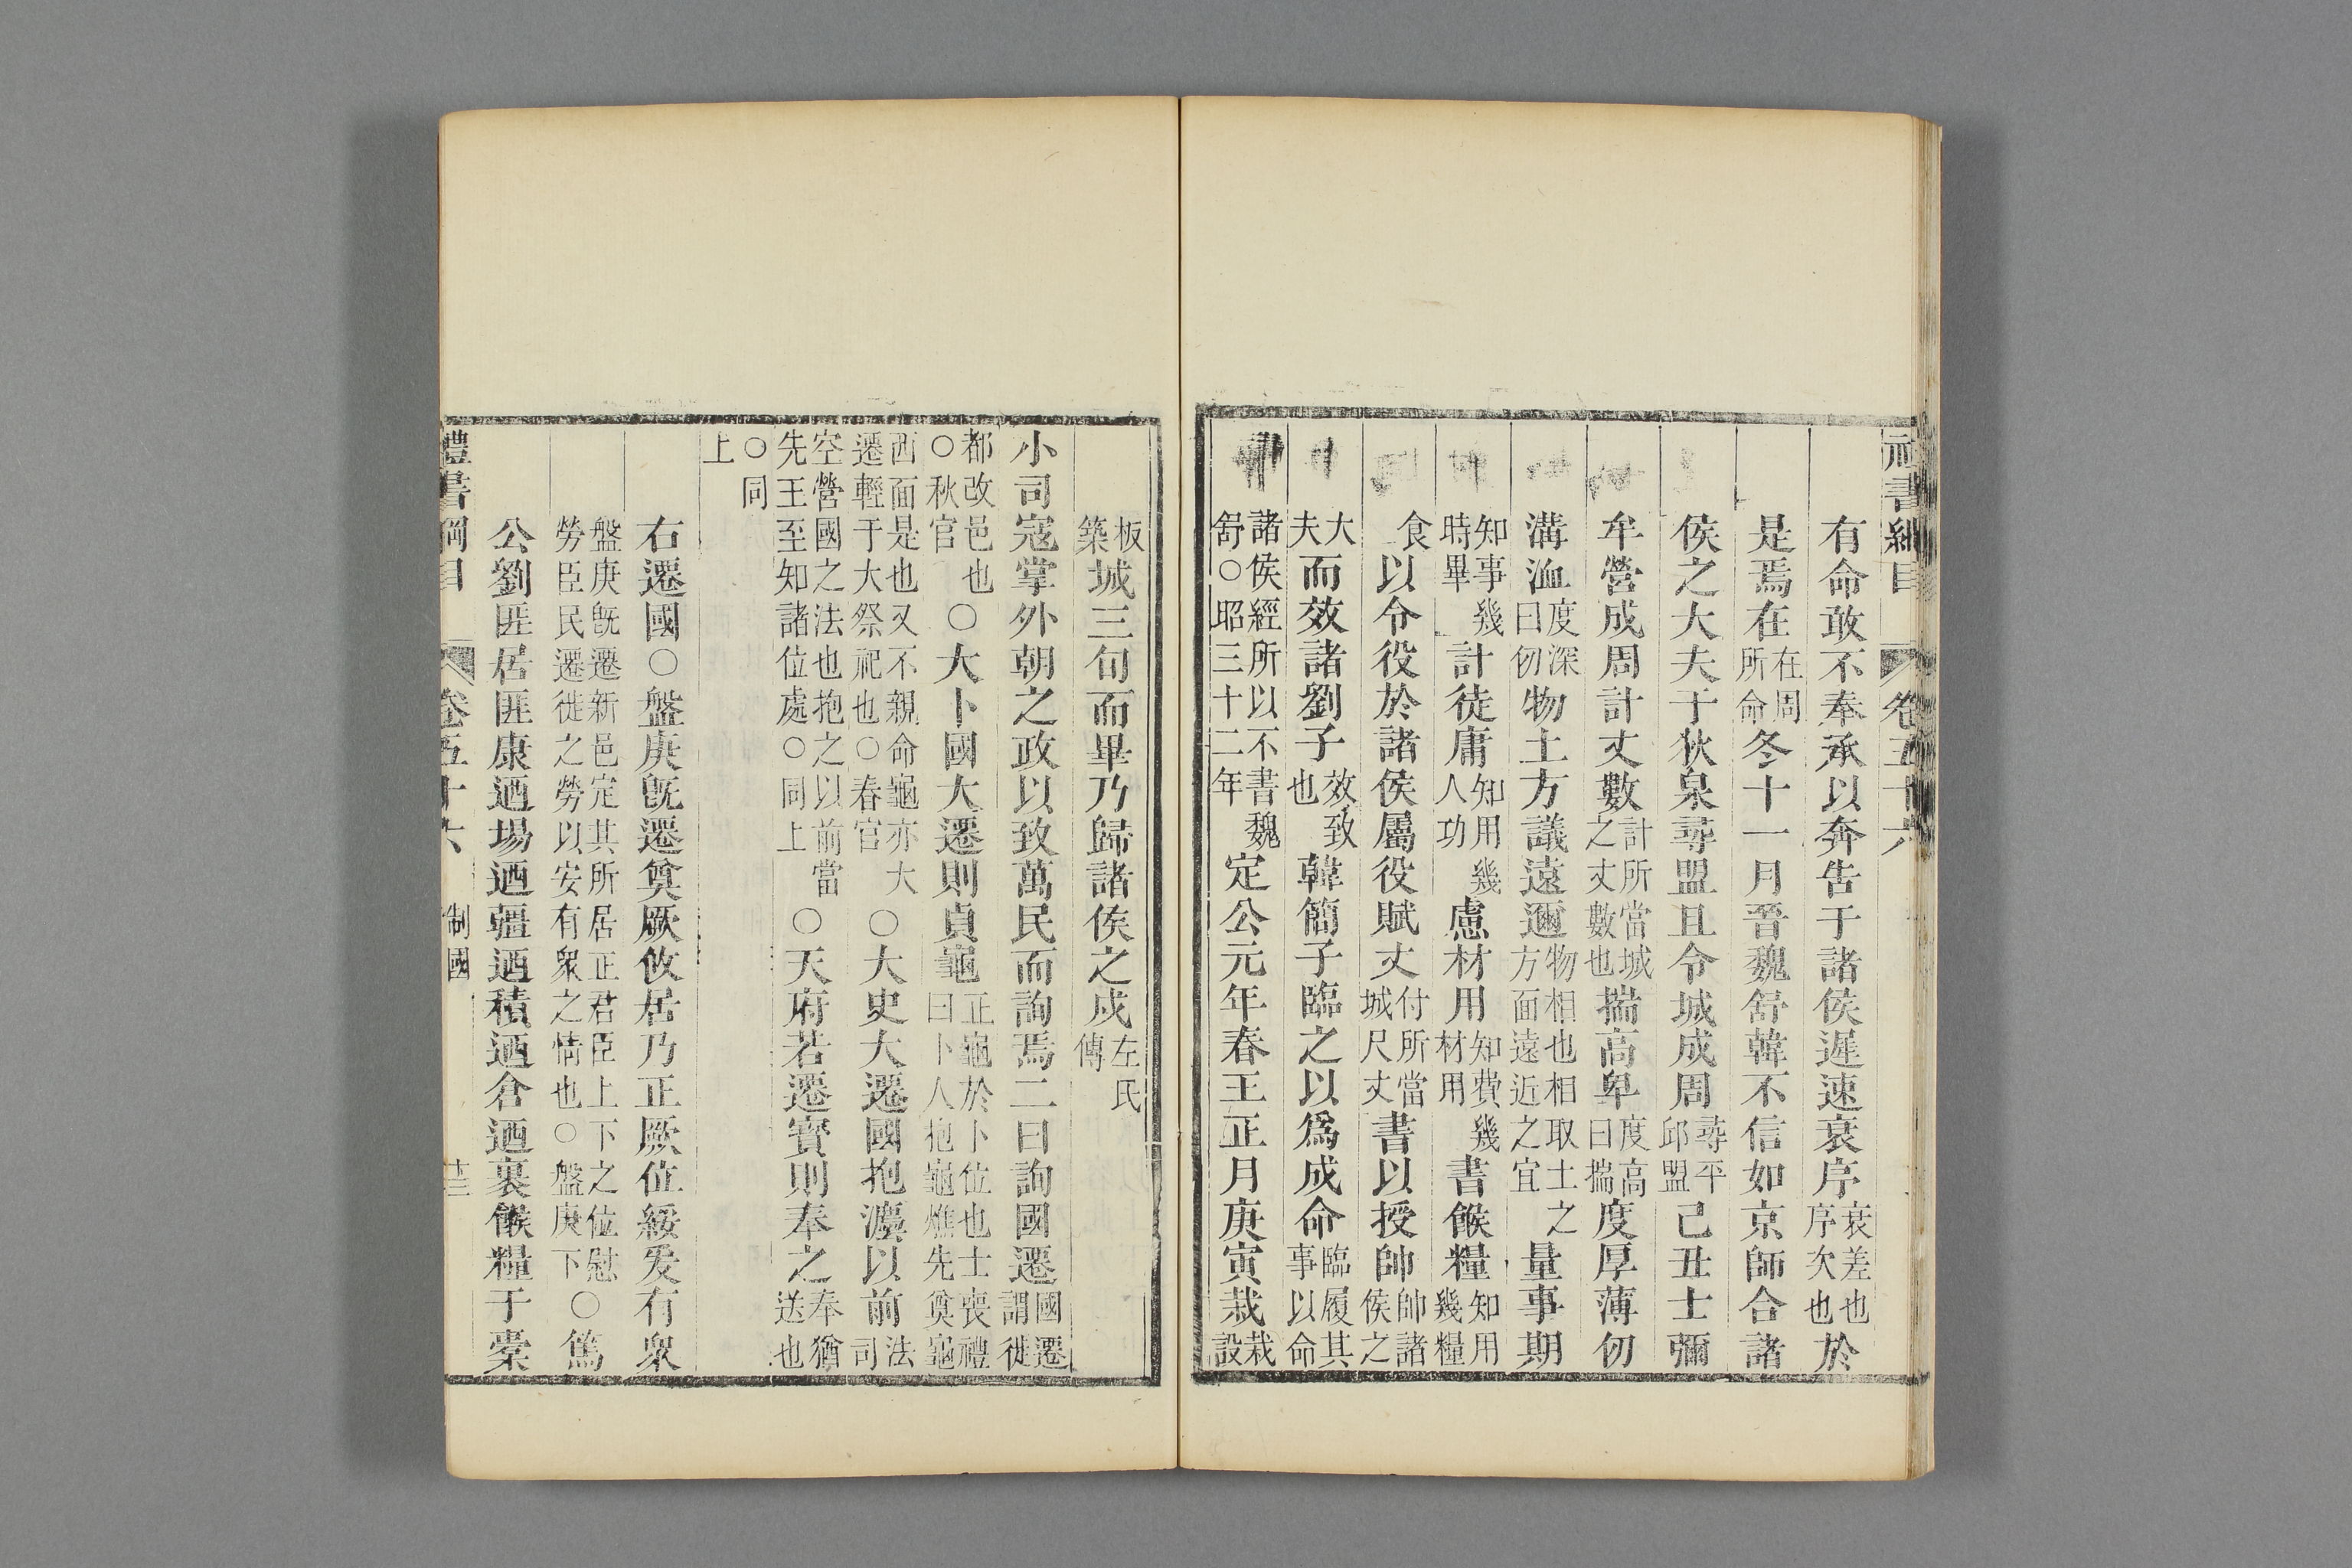 禮書綱目 卷五十六
有命敢不奉承以奔告于諸侯遲速衰序衰差也序次也於
是焉在在周所命冬十一月晉魏舒韓不信如京師合諸
侯之大夫于狄泉尋盟且令城成周尋平邱盟己丑士彌
牟營成周計丈數計所當城之丈數也揣高卑度高曰揣度厚薄仞
溝洫度深曰仞物土方議遠邇物相也相取土之方面遠近之宜量事期
知事幾時畢計徒庸知用幾人功慮材用知費幾材用書餱糧知用幾糧
食以令役於諸侯屬役賦丈付所當城尺丈書以授帥帥諸侯之
大夫而效諸劉子效致也韓簡子臨之以爲成命臨履其事以命
諸侯經所以不書魏舒○昭三十二年定公元年春王正月庚寅栽栽設
板築城三旬而畢乃歸諸侯之戍左氏傳
小司寇掌外朝之政以致萬民而詢焉二曰詢國遷國遷謂徙
都改邑也○秋官○大卜國大遷則貞龜正龜於卜位也士喪禮曰卜人抱龜燋先奠龜
西面是也又不親命龜亦大遷輕于大祭祀也○春官○大史大遷國抱灋以前法司
空營國之法也抱之以前當先王至知諸位處○同上○天府若遷寶則奉之奉猶送也
○同上
右遷國○盤庚旣遷奠厥攸居乃正厥位綏爰有衆
盤庚旣遷新邑定其所居正君臣上下之位慰勞臣民遷徙之勞以安有衆之情也○盤庚下○篤
公劉匪居匪康迺場迺疆迺積迺倉迺裹餱糧于橐
禮書綱目 卷五十六 制國 廿三